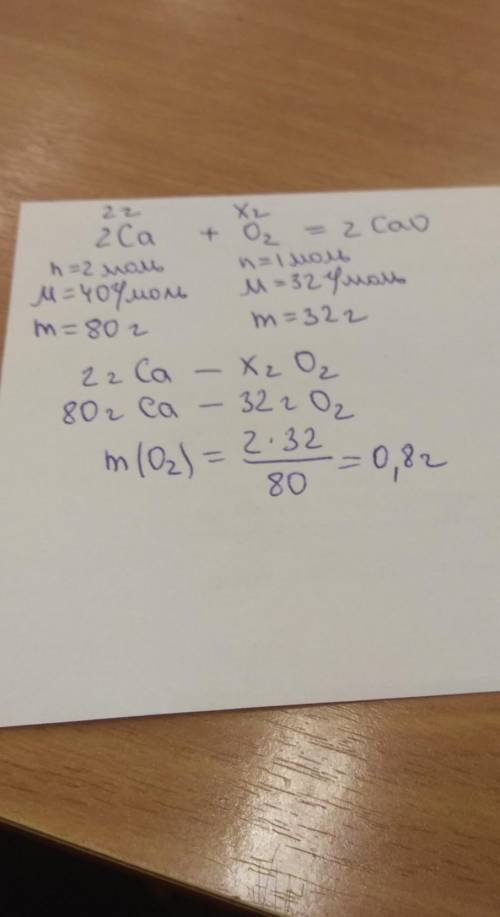 2г хг
2Ca + O₂ = 2 CaO
n=2 моль n=1 моль
M=40г/моль M=32г/моль
m=80г m=32г
2г Ca — хг O₂
80г Ca — 32г O₂
m(O₂) = 2·32/80 = 0,8г